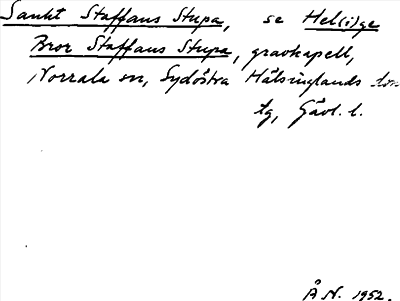 Sankt Staffans Stupa, se Hel(i)ge
Bror Staffans Stupa, gravkapell,
Norrala sn, Sydöstra Hälsinglands dom
tg, Gävl. l.
Å N. 1952.